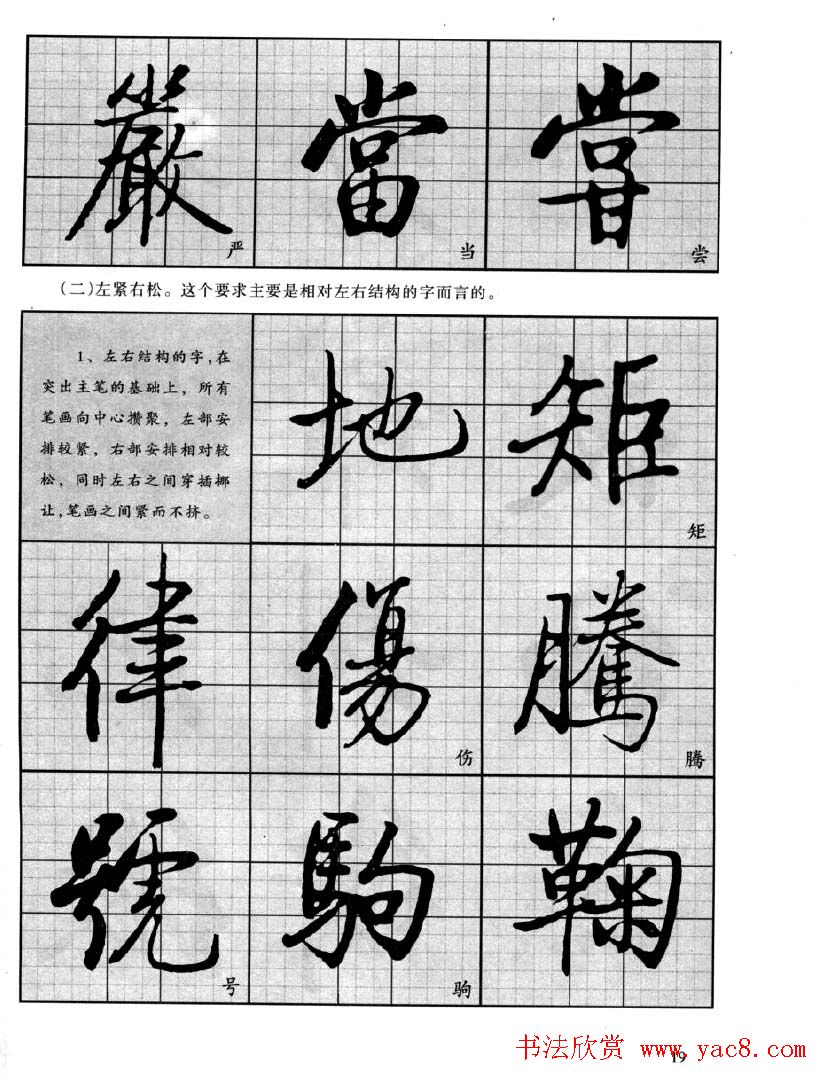 嚴 當 嘗
严 当 尝
(二)左紧右松。这个要求主要是相对左右结构的字而言的。
1、左右结构的字,在
突出主笔的基础上，所有
笔画向中心攒聚，左部安
排较紧，右部安排相对较
松，同时左右之间穿插挪
让,笔画之间紧而不挤。
地 矩
矩
律 傷 騰
伤 腾
號 駒 鞠
号 驹
书法欣赏 www.yac8.com
19